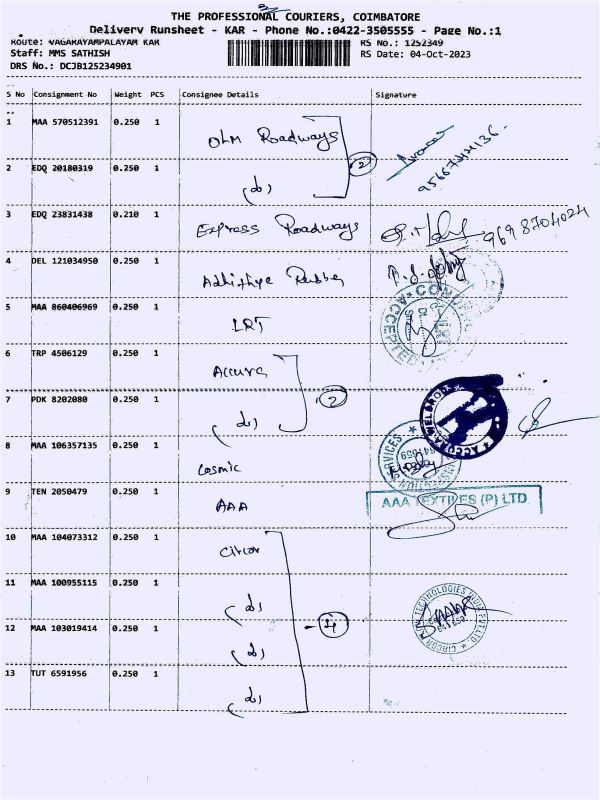 THE PROFESSIONAL COURIERS, COIMBATORE
Delivery Runsheet - KAR - Phone No.:0422-3505555 - Page No.:1
Route: VAGARAYAMPALAYAM KAR
RS No.: 1252349
Staff: MMS SATHISH
RS Date: 04-Oct-2023
DRS No.: DCJB125234901
S No Consignment No Weight PCS Consignee Details Signature
1 MAA 570512391 0.250 1 OLM Roadways
2 EDQ 20180319 0.250 1 (do) 2
3 EDQ 23831438 0.210 1 Express Roadways 9698704024
4 DEL 121034950 0.250 1 Adhithya Rubber
5 MAA 860406969 0.250 1 LRT
ACCEPTED
6 TRP 4506129 0.250 1 Accura
7 PDK 8202080 0.250 1 (do) 2
8 MAA 106357135 0.250 1 Cosmic
SERVICES
641059
9 TEN 2050479 0.250 1 AAA
AAA TEXTILES (P) LTD
10 MAA 104073312 0.250 1 Circor
11 MAA 100955115 0.250 1 (do)
12 MAA 103019414 0.250 1 (do) 4
CIRCOR FLOW TECHNOLOGIES INDIA PVT LTD.
13 TUT 6591956 0.250 1 (do)